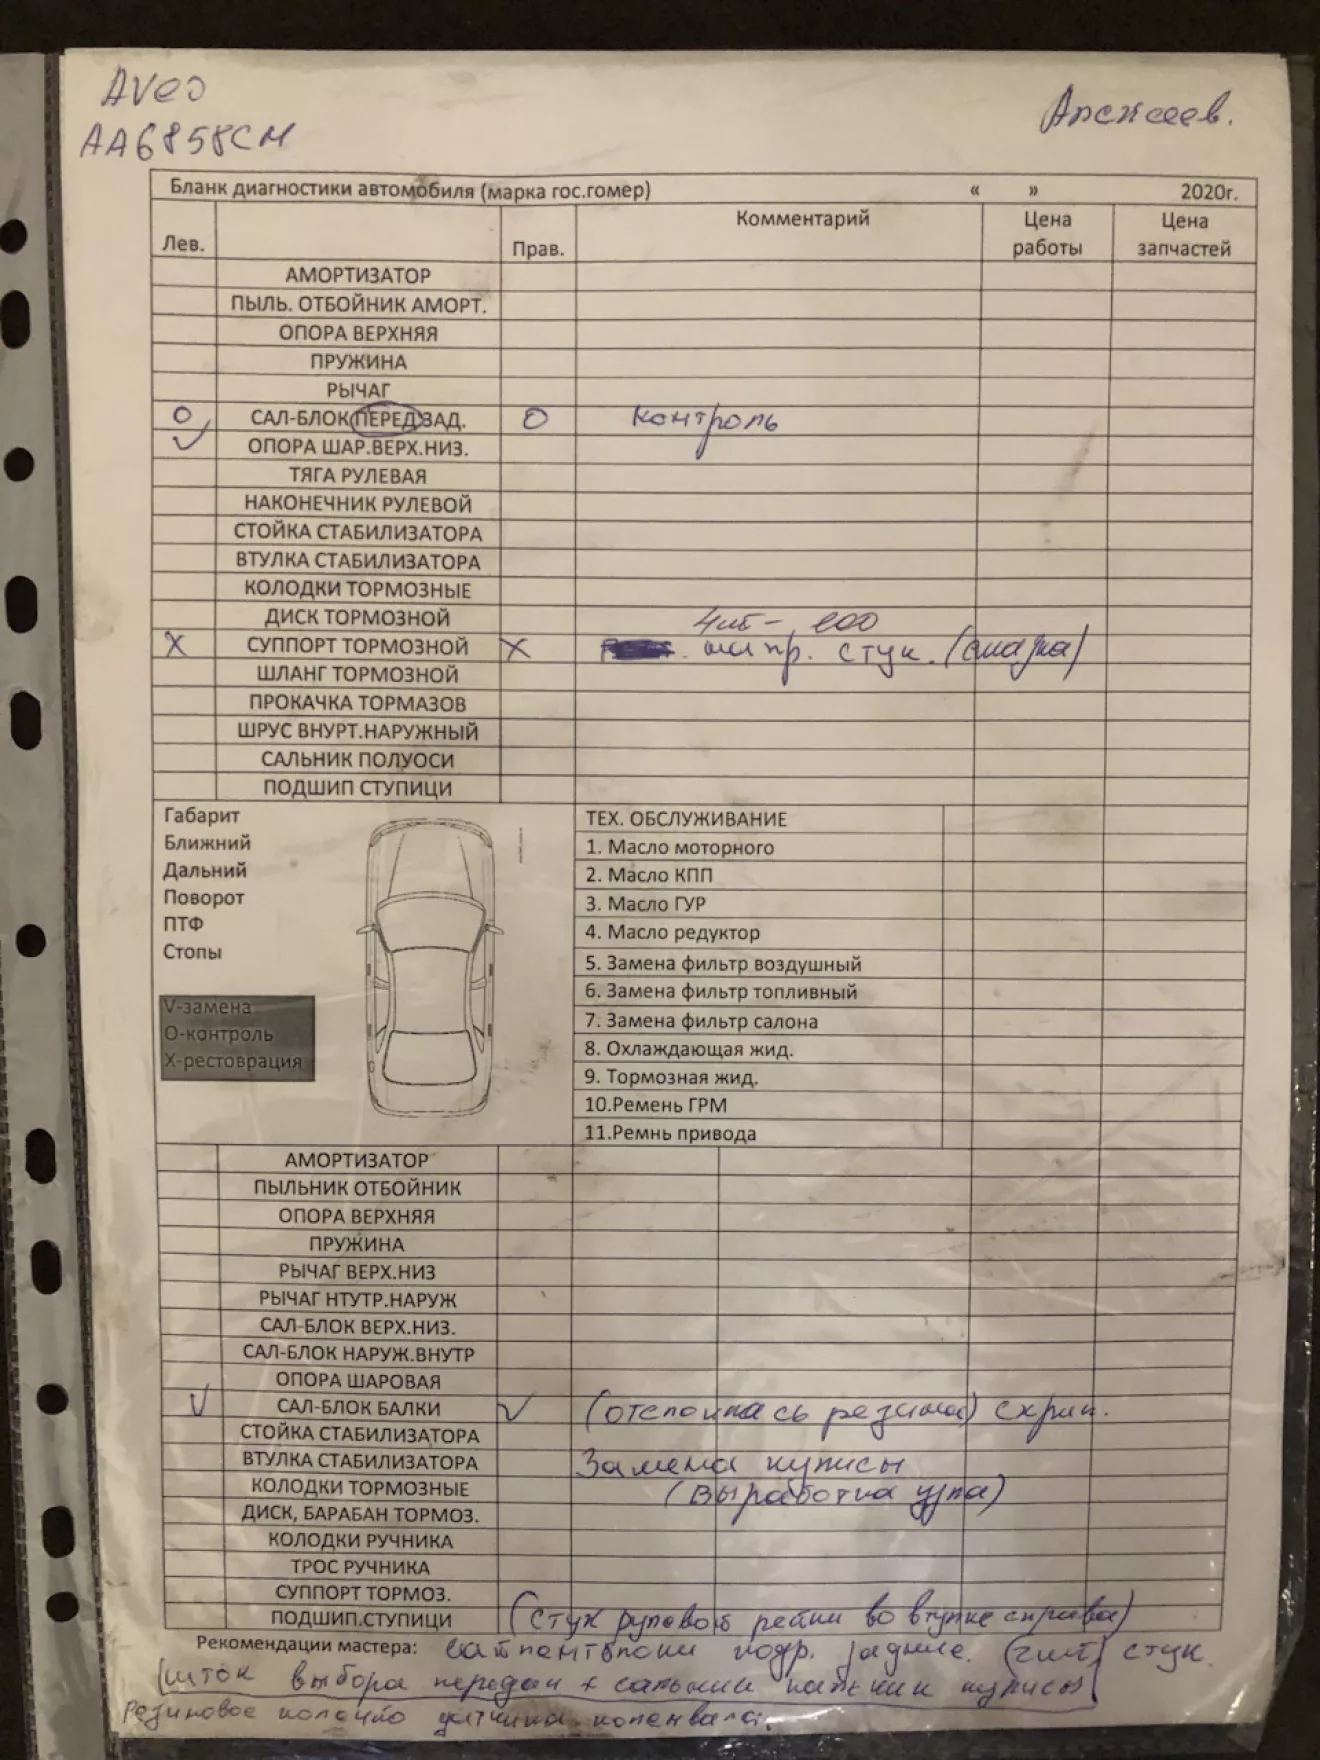 Aveo
AA6858CM
Алексеев.
Бланк диагностики автомобиля (марка гос.гомер) « » 2020г.
Лев. Прав. Комментарий Цена работы Цена запчастей
АМОРТИЗАТОР
ПЫЛЬ. ОТБОЙНИК АМОРТ.
ОПОРА ВЕРХНЯЯ
ПРУЖИНА
РЫЧАГ
O САЛ-БЛОК ПЕРЕД ЗАД. O контроль
V ОПОРА ШАР.ВЕРХ.НИЗ.
ТЯГА РУЛЕВАЯ
НАКОНЕЧНИК РУЛЕВОЙ
СТОЙКА СТАБИЛИЗАТОРА
ВТУЛКА СТАБИЛИЗАТОРА
КОЛОДКИ ТОРМОЗНЫЕ
ДИСК ТОРМОЗНОЙ
4шт-
X СУППОРТ ТОРМОЗНОЙ X напр. стук. (смазка)
ШЛАНГ ТОРМОЗНОЙ
ПРОКАЧКА ТОРМАЗОВ
ШРУС ВНУРТ.НАРУЖНЫЙ
САЛЬНИК ПОЛУОСИ
ПОДШИП СТУПИЦИ
Габарит
Ближний
Дальний
Поворот
ПТФ
Стопы
V-замена
О-контроль
Х-рестоврация
ТЕХ. ОБСЛУЖИВАНИЕ
1. Масло моторного
2. Масло КПП
3. Масло ГУР
4. Масло редуктор
5. Замена фильтр воздушный
6. Замена фильтр топливный
7. Замена фильтр салона
8. Охлаждающая жид.
9. Тормозная жид.
10.Ремень ГРМ
11.Ремнь привода
АМОРТИЗАТОР
ПЫЛЬНИК ОТБОЙНИК
ОПОРА ВЕРХНЯЯ
ПРУЖИНА
РЫЧАГ ВЕРХ.НИЗ
РЫЧАГ НТУТР.НАРУЖ
САЛ-БЛОК ВЕРХ.НИЗ.
САЛ-БЛОК НАРУЖ.ВНУТР
ОПОРА ШАРОВАЯ
V САЛ-БЛОК БАЛКИ V (отслоилась резина) скрип.
СТОЙКА СТАБИЛИЗАТОРА
ВТУЛКА СТАБИЛИЗАТОРА Замена кулисы
КОЛОДКИ ТОРМОЗНЫЕ (Выработка узла)
ДИСК, БАРАБАН ТОРМОЗ.
КОЛОДКИ РУЧНИКА
ТРОС РУЧНИКА
СУППОРТ ТОРМОЗ.
ПОДШИП.СТУПИЦИ (стук рулевой рейки во втулке справа)
Рекомендации мастера: сайлентблоки подр. задние. (2шт) стук.
(шток выбора передач + сальник кулисы)
Резиновое колечко датчика коленвала.